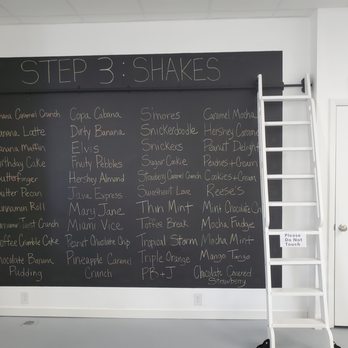 STEP 3: SHAKES
Caramel Crunch
Latte
Muffin
Birthday Cake
Butterfinger
Butter Pecan
Cinnamon Roll
Toast Crunch
Coffee Crumble Cake
Chocolate Banana
Pudding
Copa Cabana
Dirty Banana
Elvis
Fruity Pebbles
Hershey Almond
Java Express
Mary Jane
Miami Vice
Peanut Chocolate Chip
Pineapple Caramel
Crunch
S'mores
Snickerdoodle
Snickers
Sugar Cookie
Strawberry Caramel Crunch
Sweetheart Love
Thin Mint
Toffee Break
Tropical Storm
Triple Orange
PB+J
Caramel Mocha
Hershey Caramel
Peanut Delight
Peaches+Cream
Cookies+Cream
Reese's
Mint Chocolate Ch
Mocha Fudge
Mocha Mint
Mango Tango
Chocolate Covered
Strawberry
Please
Do Not
Touch